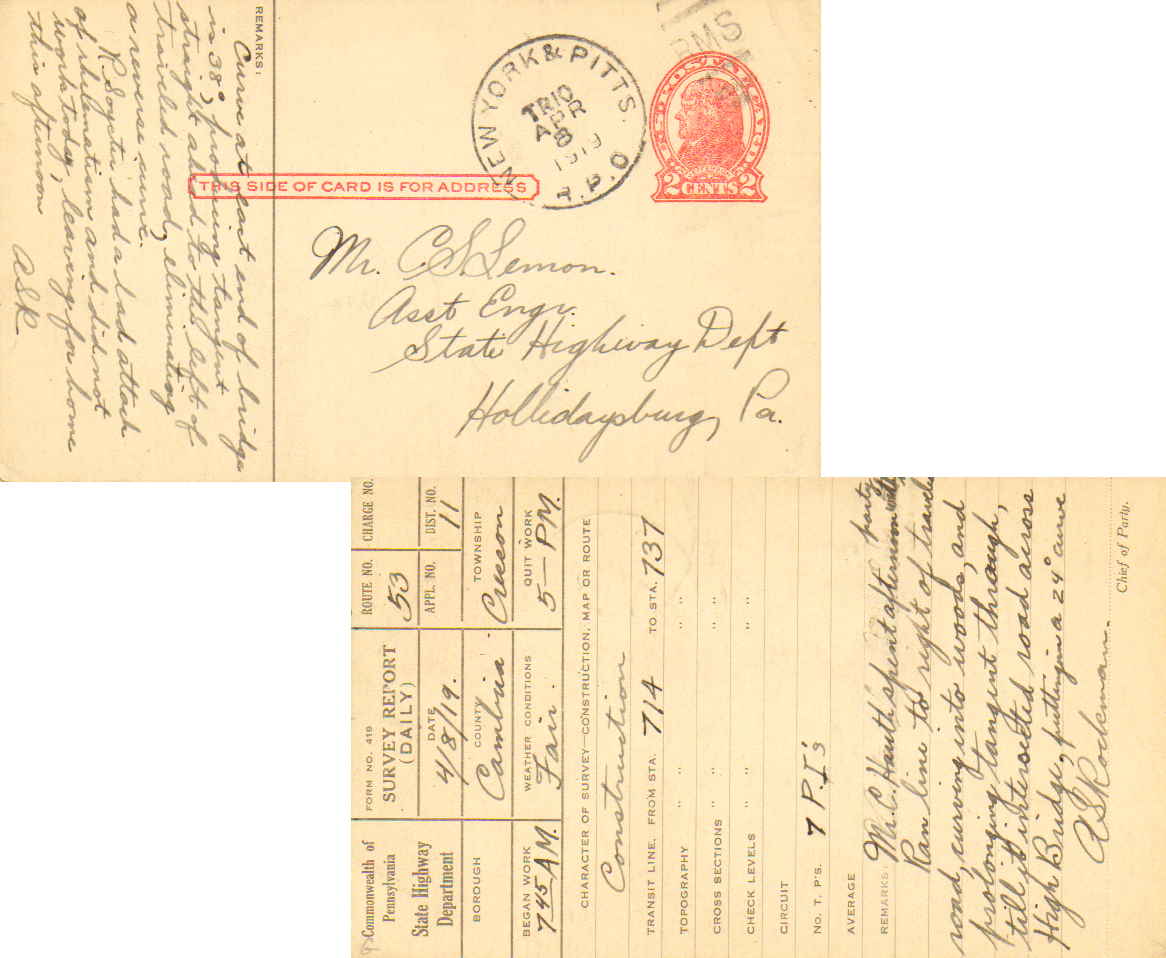 REMARKS:
Curve at east end of bridge
is 38°, producing tangent
straight ahead to the left of
traveled road, eliminating
a reverse curve.
R Soyster had a bad attack
of rheumatism and did not
work today, leaving for home
this afternoon
ASR
NEW YORK & PITTS.
TR 10
APR
8
1919
R.P.O.
RMS
2 CENTS 2
THIS SIDE OF CARD IS FOR ADDRESS
Mr. C S Lemon.
Asst Engr.
State Highway Dept
Hollidaysburg, Pa.
Commonwealth of
Pennsylvania
State Highway
Department
FORM NO. 419
SURVEY REPORT
(DAILY)
DATE
4/8/19.
ROUTE NO.
53
CHARGE NO.
APPL. NO.
DIST. NO.
11
BOROUGH
COUNTY
Cambria
TOWNSHIP
Cresson
BEGAN WORK
7 45 AM.
WEATHER CONDITIONS
Fair.
QUIT WORK
5 - PM.
CHARACTER OF SURVEY—CONSTRUCTION, MAP OR ROUTE
Construction
TRANSIT LINE, FROM STA. 714 TO STA. 737
TOPOGRAPHY " " " "
CROSS SECTIONS " " " "
CHECK LEVELS " " " "
CIRCUIT
No. T. P'S. 7 P.I's
AVERAGE
REMARKS: Mr. C. Hauth spent afternoon with party
Ran line to right of traveled
road, curving into woods, and
prolonging tangent through,
till it intersected road across
High Bridge, putting in a 24° curve
ASRockman.
Chief of Party.